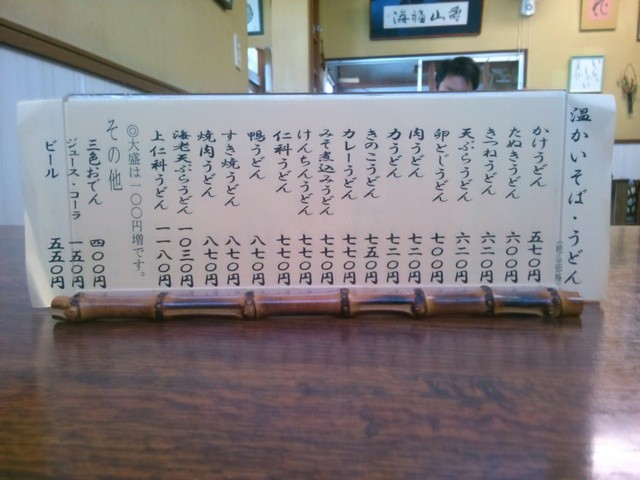 温かいそば・うどん
かけうどん 五七〇円
たぬきうどん 六〇〇円
きつねうどん 六二〇円
天ぷらうどん 六二〇円
卵とじうどん 七〇〇円
肉うどん 七二〇円
力うどん 七二〇円
きのこうどん 七五〇円
カレーうどん 七七〇円
みそ煮込みうどん 七七〇円
けんちんうどん 七七〇円
仁科うどん 七七〇円
鴨うどん 八七〇円
すき焼うどん 八七〇円
焼肉うどん 八七〇円
海老天ぷらうどん 一〇三〇円
上仁科うどん 一一八〇円
◎大盛は一〇〇円増です。
その他
三色おでん 四〇〇円
ジュース・コーラ 一五〇円
ビール 五五〇円